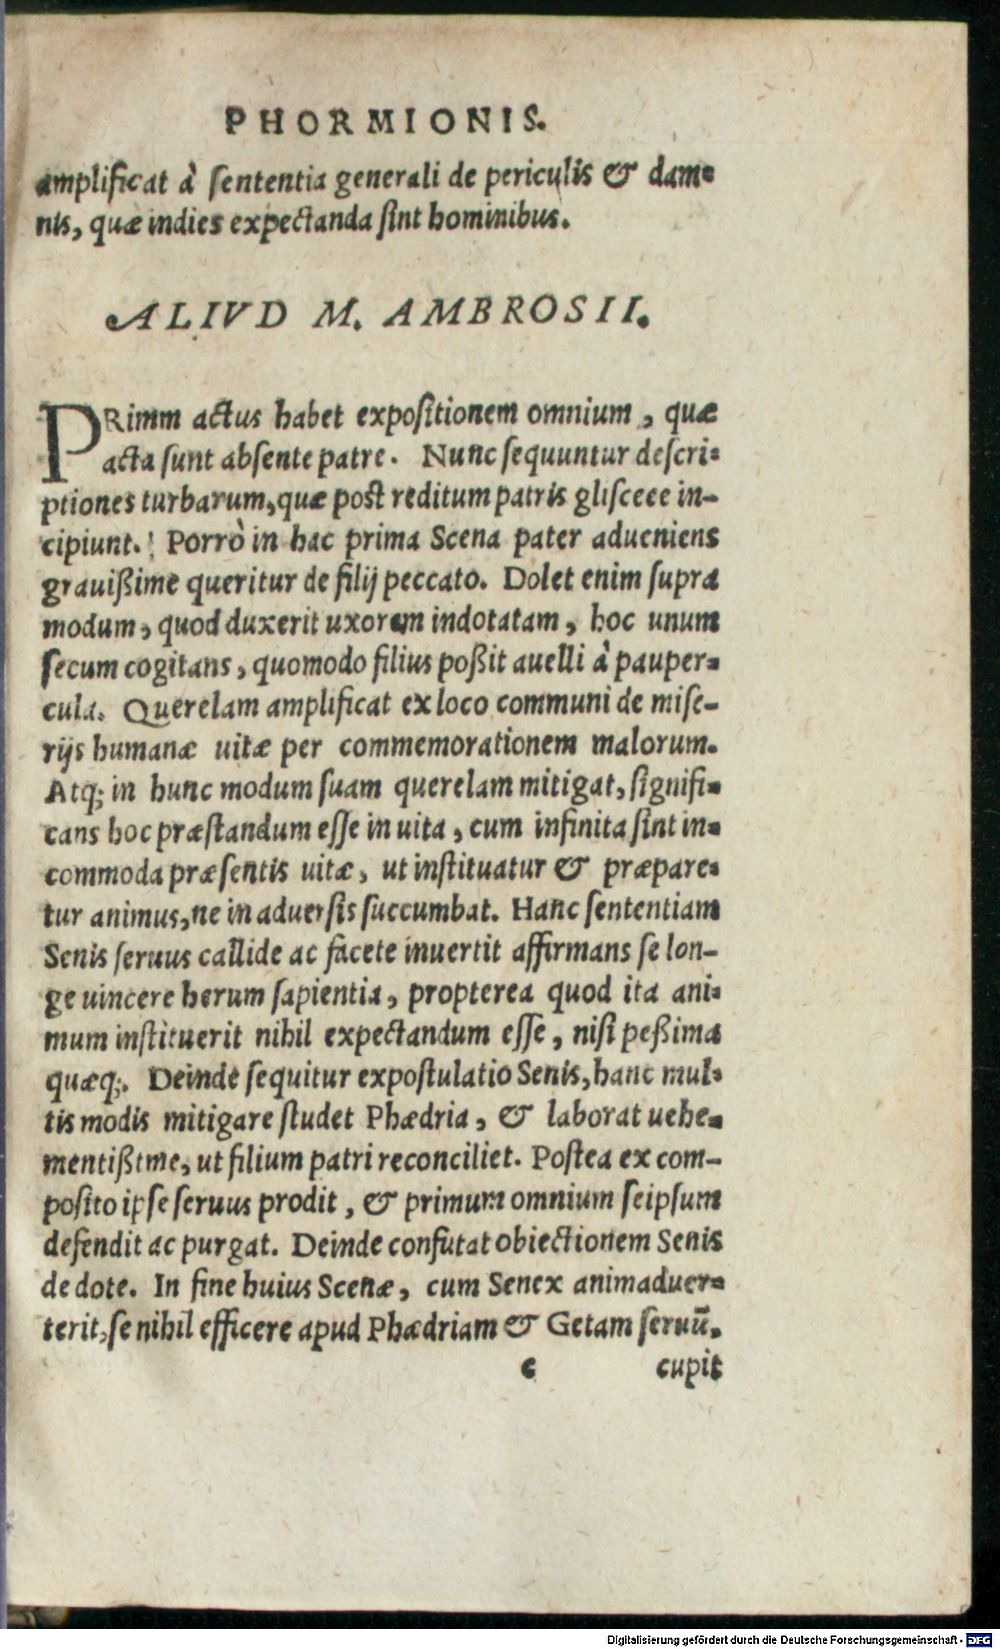 PHORMIONIS.
amplificat à sententia generali de periculis & dam-
nis, quæ indies expectanda sint hominibus.
ALIVD M. AMBROSII.
PRimm actus habet expositionem omnium, quæ
acta sunt absente patre. Nunc sequuntur descri-
ptiones turbarum, quæ post reditum patris glisceee in-
cipiunt. Porrò in hac prima Scena pater adueniens
grauißime queritur de filij peccato. Dolet enim supra
modum, quod duxerit uxorem indotatam, hoc unum
secum cogitans, quomodo filius poßit auelli à pauper-
cula. Querelam amplificat ex loco communi de mise-
rijs humanæ uitæ per commemorationem malorum.
Atq; in hunc modum suam querelam mitigat, signifi-
cans hoc præstandum esse in uita, cum infinita sint in-
commoda præsentis uitæ, ut instituatur & præpare-
tur animus, ne in aduersis succumbat. Hanc sententiam
Senis seruus callide ac facete inuertit affirmans se lon-
ge uincere herum sapientia, propterea quod ita ani-
mum instituerit nihil expectandum esse, nisi peßima
quæq;. Deinde sequitur expostulatio Senis, hanc mul-
tis modis mitigare studet Phædria, & laborat uehe-
mentißtme, ut filium patri reconciliet. Postea ex com-
posito ipse seruus prodit, & primum omnium seipsum
defendit ac purgat. Deinde confutat obiectionem Senis
de dote. In fine huius Scenæ, cum Senex animaduer-
terit, se nihil efficere apud Phædriam & Getam seruū.
c cupit
Digitalisierung gefördert durch die Deutsche Forschungsgemeinschaft - DFG